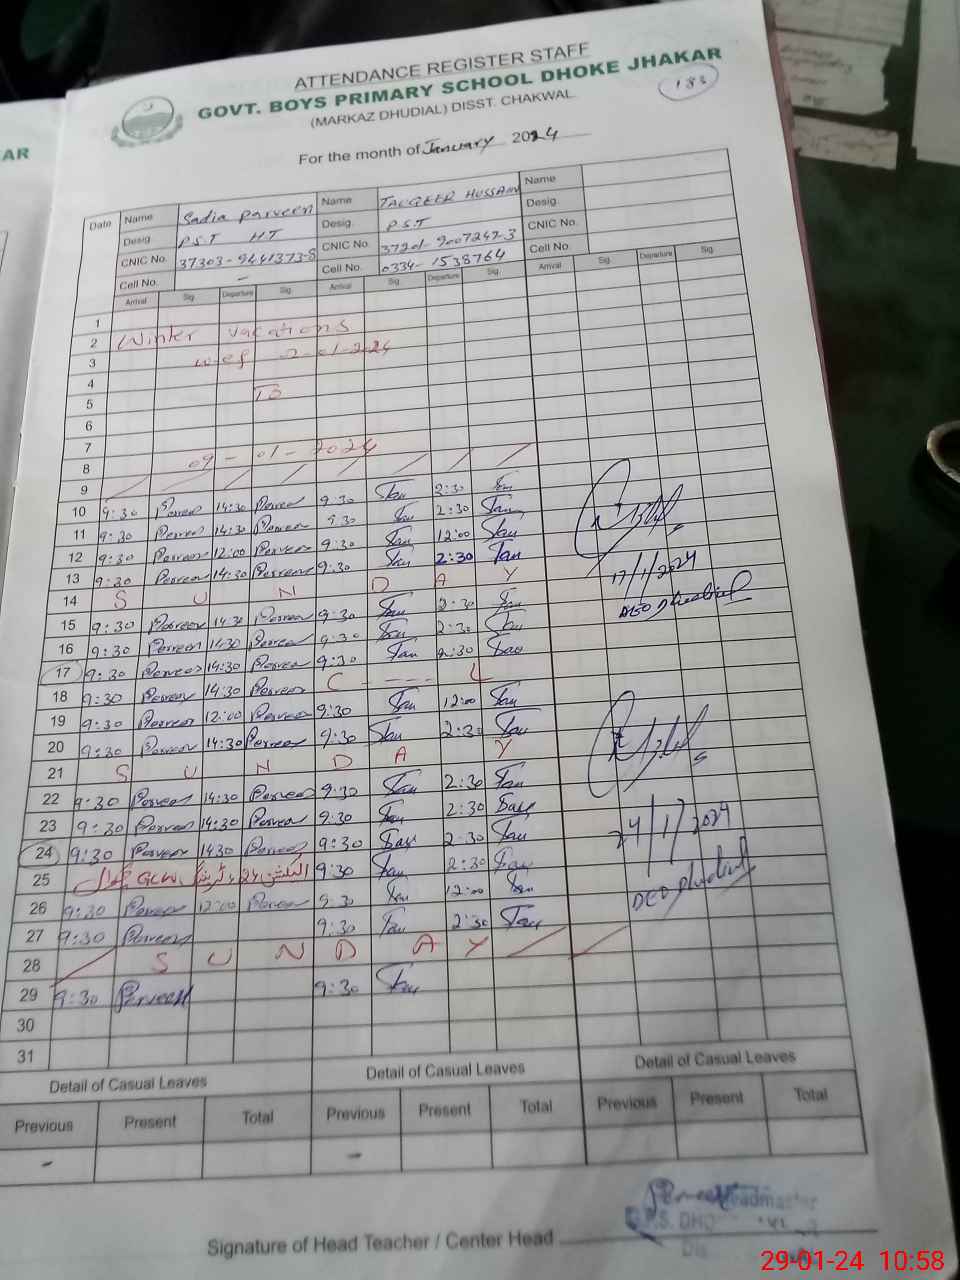 AR
ATTENDANCE REGISTER STAFF
GOVT. BOYS PRIMARY SCHOOL DHOKE JHAKAR
(MARKAZ DHUDIAL) DISST. CHAKWAL
183
For the month of January 2024
Date Name Sadia Parveen Name TAUQEER HUSSAIN Name
Desig. P.S.T HT Desig. P.S.T Desig.
CNIC No. 37303-9441373-8 CNIC No. 37201-9007247-3 CNIC No.
Cell No. - Cell No. 0334-1538764 Cell No.
Arrival Sig. Departure Sig. Arrival Sig. Departure Sig. Arrival Sig. Departure Sig.
1
2 Winter vacations
3 w-e-f 02-01-2024
4
5 To
6
7
8 09-01-2024
9
10 9:30 Parveen 14:30 Parveen 9:30 2:30
11 9:30 Parveen 14:30 Parveen 9:30 2:30
12 9:30 Parveen 12:00 Parveen 9:30 12:00
13 9:30 Parveen 14:30 Parveen 9:30 2:30
14 S U N D A Y
17/1/2024
15 9:30 Parveen 14:30 Parveen 9:30 2:30
DEO Dhudial
16 9:30 Parveen 14:30 Parveen 9:30 2:30
17 9:30 Parveen 14:30 Parveen 9:30 2:30
18 9:30 Parveen 14:30 Parveen C - - - - L
19 9:30 Parveen 12:00 Parveen 9:30 12:00
20 9:30 Parveen 14:30 Parveen 9:30 2:30
21 S U N D A Y
22 9:30 Parveen 14:30 Parveen 9:30 2:30
23 9:30 Parveen 14:30 Parveen 9:30 2:30
24 9:30 Parveen 1430 Parveen 9:30 2:30
24/1/2024
25 GCW 9:30 2:30
DEO Dhudial
26 9:30 Parveen 12:00 Parveen 9:30 12:00
27 9:30 Parveen 9:30 2:30
28 S U N D A Y
29 9:30 Parveen 9:30
30
31
Detail of Casual Leaves Detail of Casual Leaves Detail of Casual Leaves
Previous Present Total Previous Present Total Previous Present Total
- -
Parveen
Headmaster
Signature of Head Teacher / Center Head
29-01-24 10:58